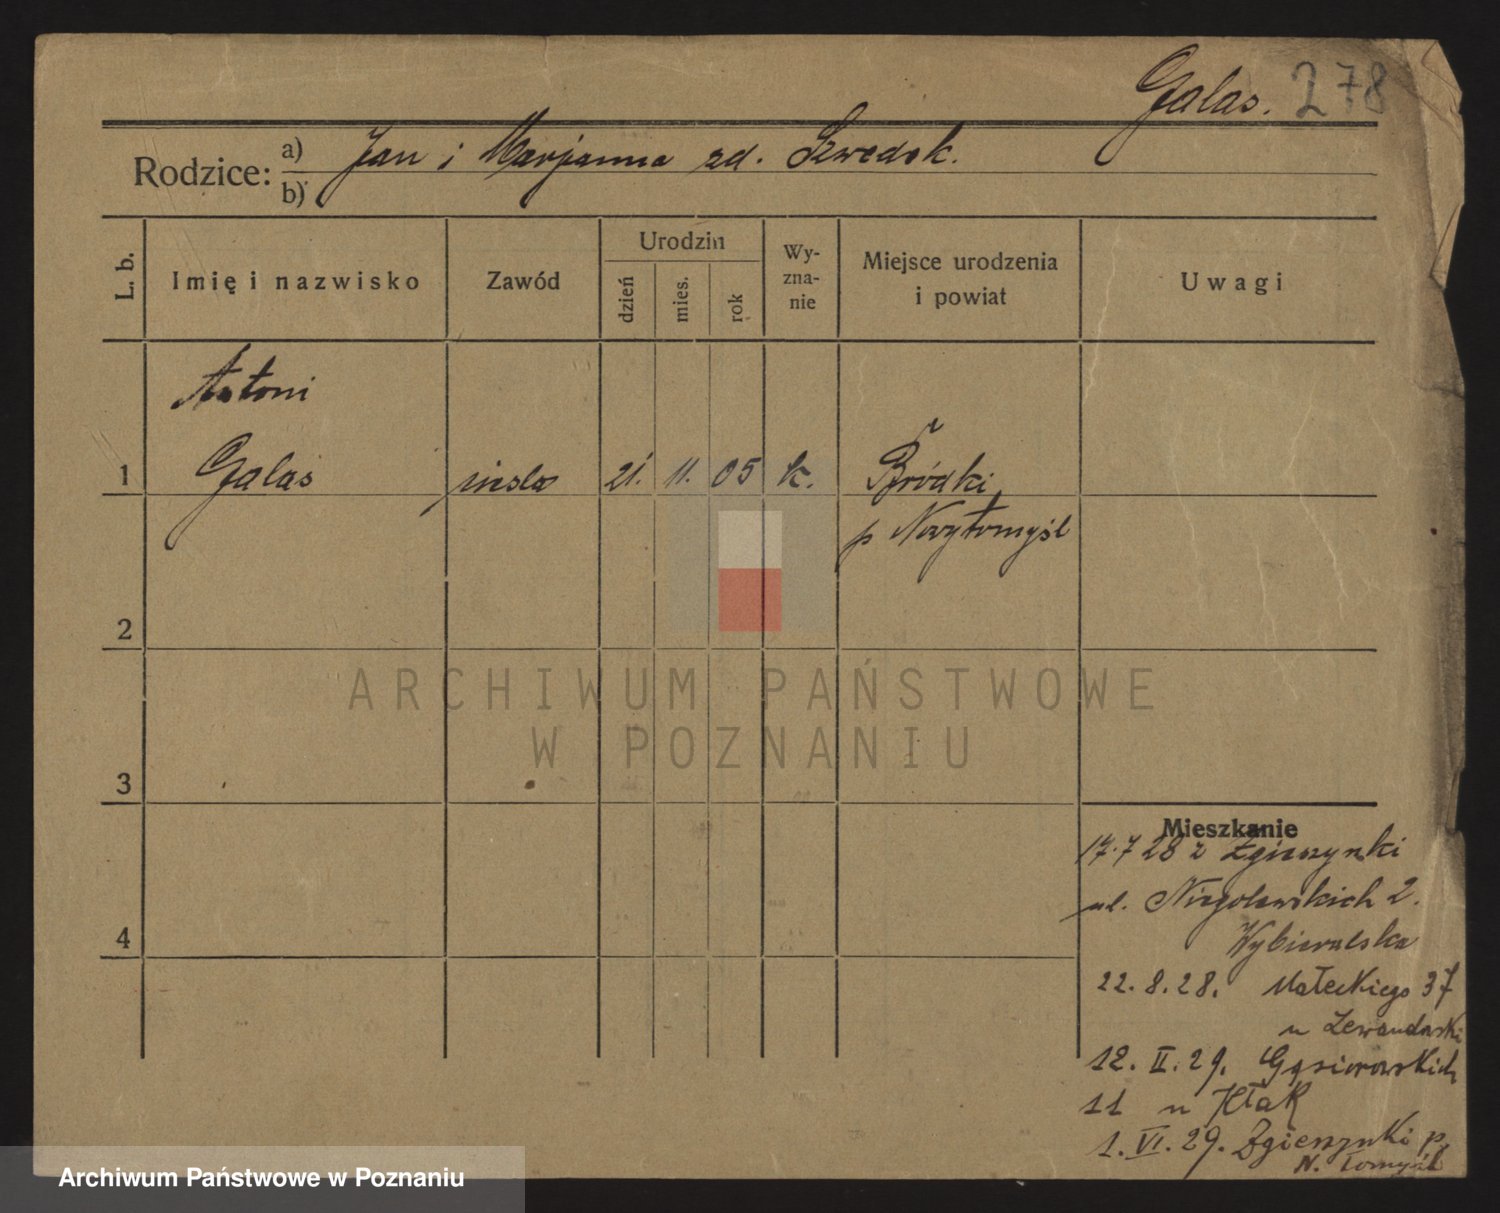 Galas. 278
Rodzice: a) Jan i Marjanna zd. Szwedek.
b)
L. b.
Imię i nazwisko
Zawód
Urodzin
dzień
mies.
rok
Wy-
zna-
nie
Miejsce urodzenia
i powiat
Uwagi
Antoni
1 Galas 21. 11. 05 k. Bródki
p Nowytomyśl
2
ARCHIWUM PAŃSTWOWE
W POZNANIU
3
4
Mieszkanie
17.7 28 z Zgierzynki
ul. Niegolewskich 2.
Wybieralska
22. 8. 28. Małeckiego 37
u Lewandowski
12. II. 29. Gąsiorowskich
11 u Kłak
1. VI. 29. Zgierzynki p.
N. Tomyśl
Archiwum Państwowe w Poznaniu